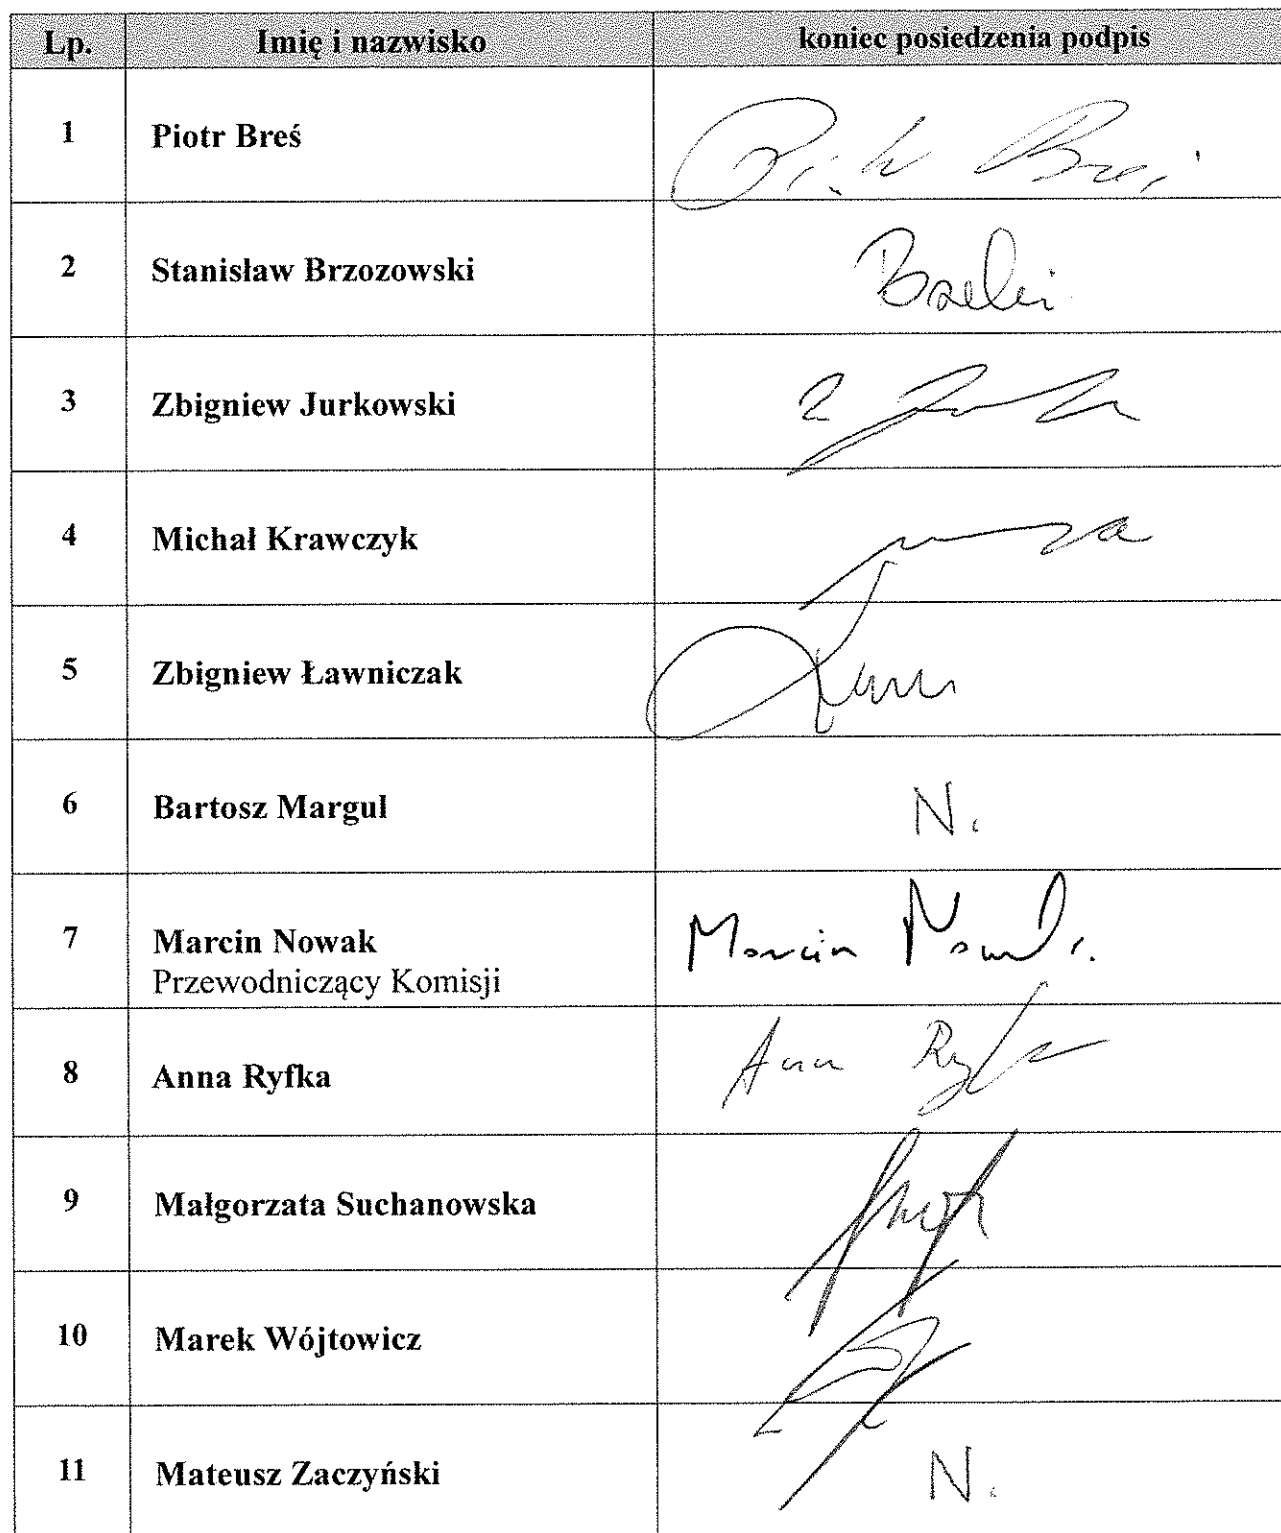 Lp. Imię i nazwisko koniec posiedzenia podpis
1 Piotr Breś
2 Stanisław Brzozowski
3 Zbigniew Jurkowski
4 Michał Krawczyk
5 Zbigniew Ławniczak
6 Bartosz Margul N.
7 Marcin Nowak Marcin Nowak
Przewodniczący Komisji
8 Anna Ryfka Anna Ryfka
9 Małgorzata Suchanowska
10 Marek Wójtowicz
11 Mateusz Zaczyński N.